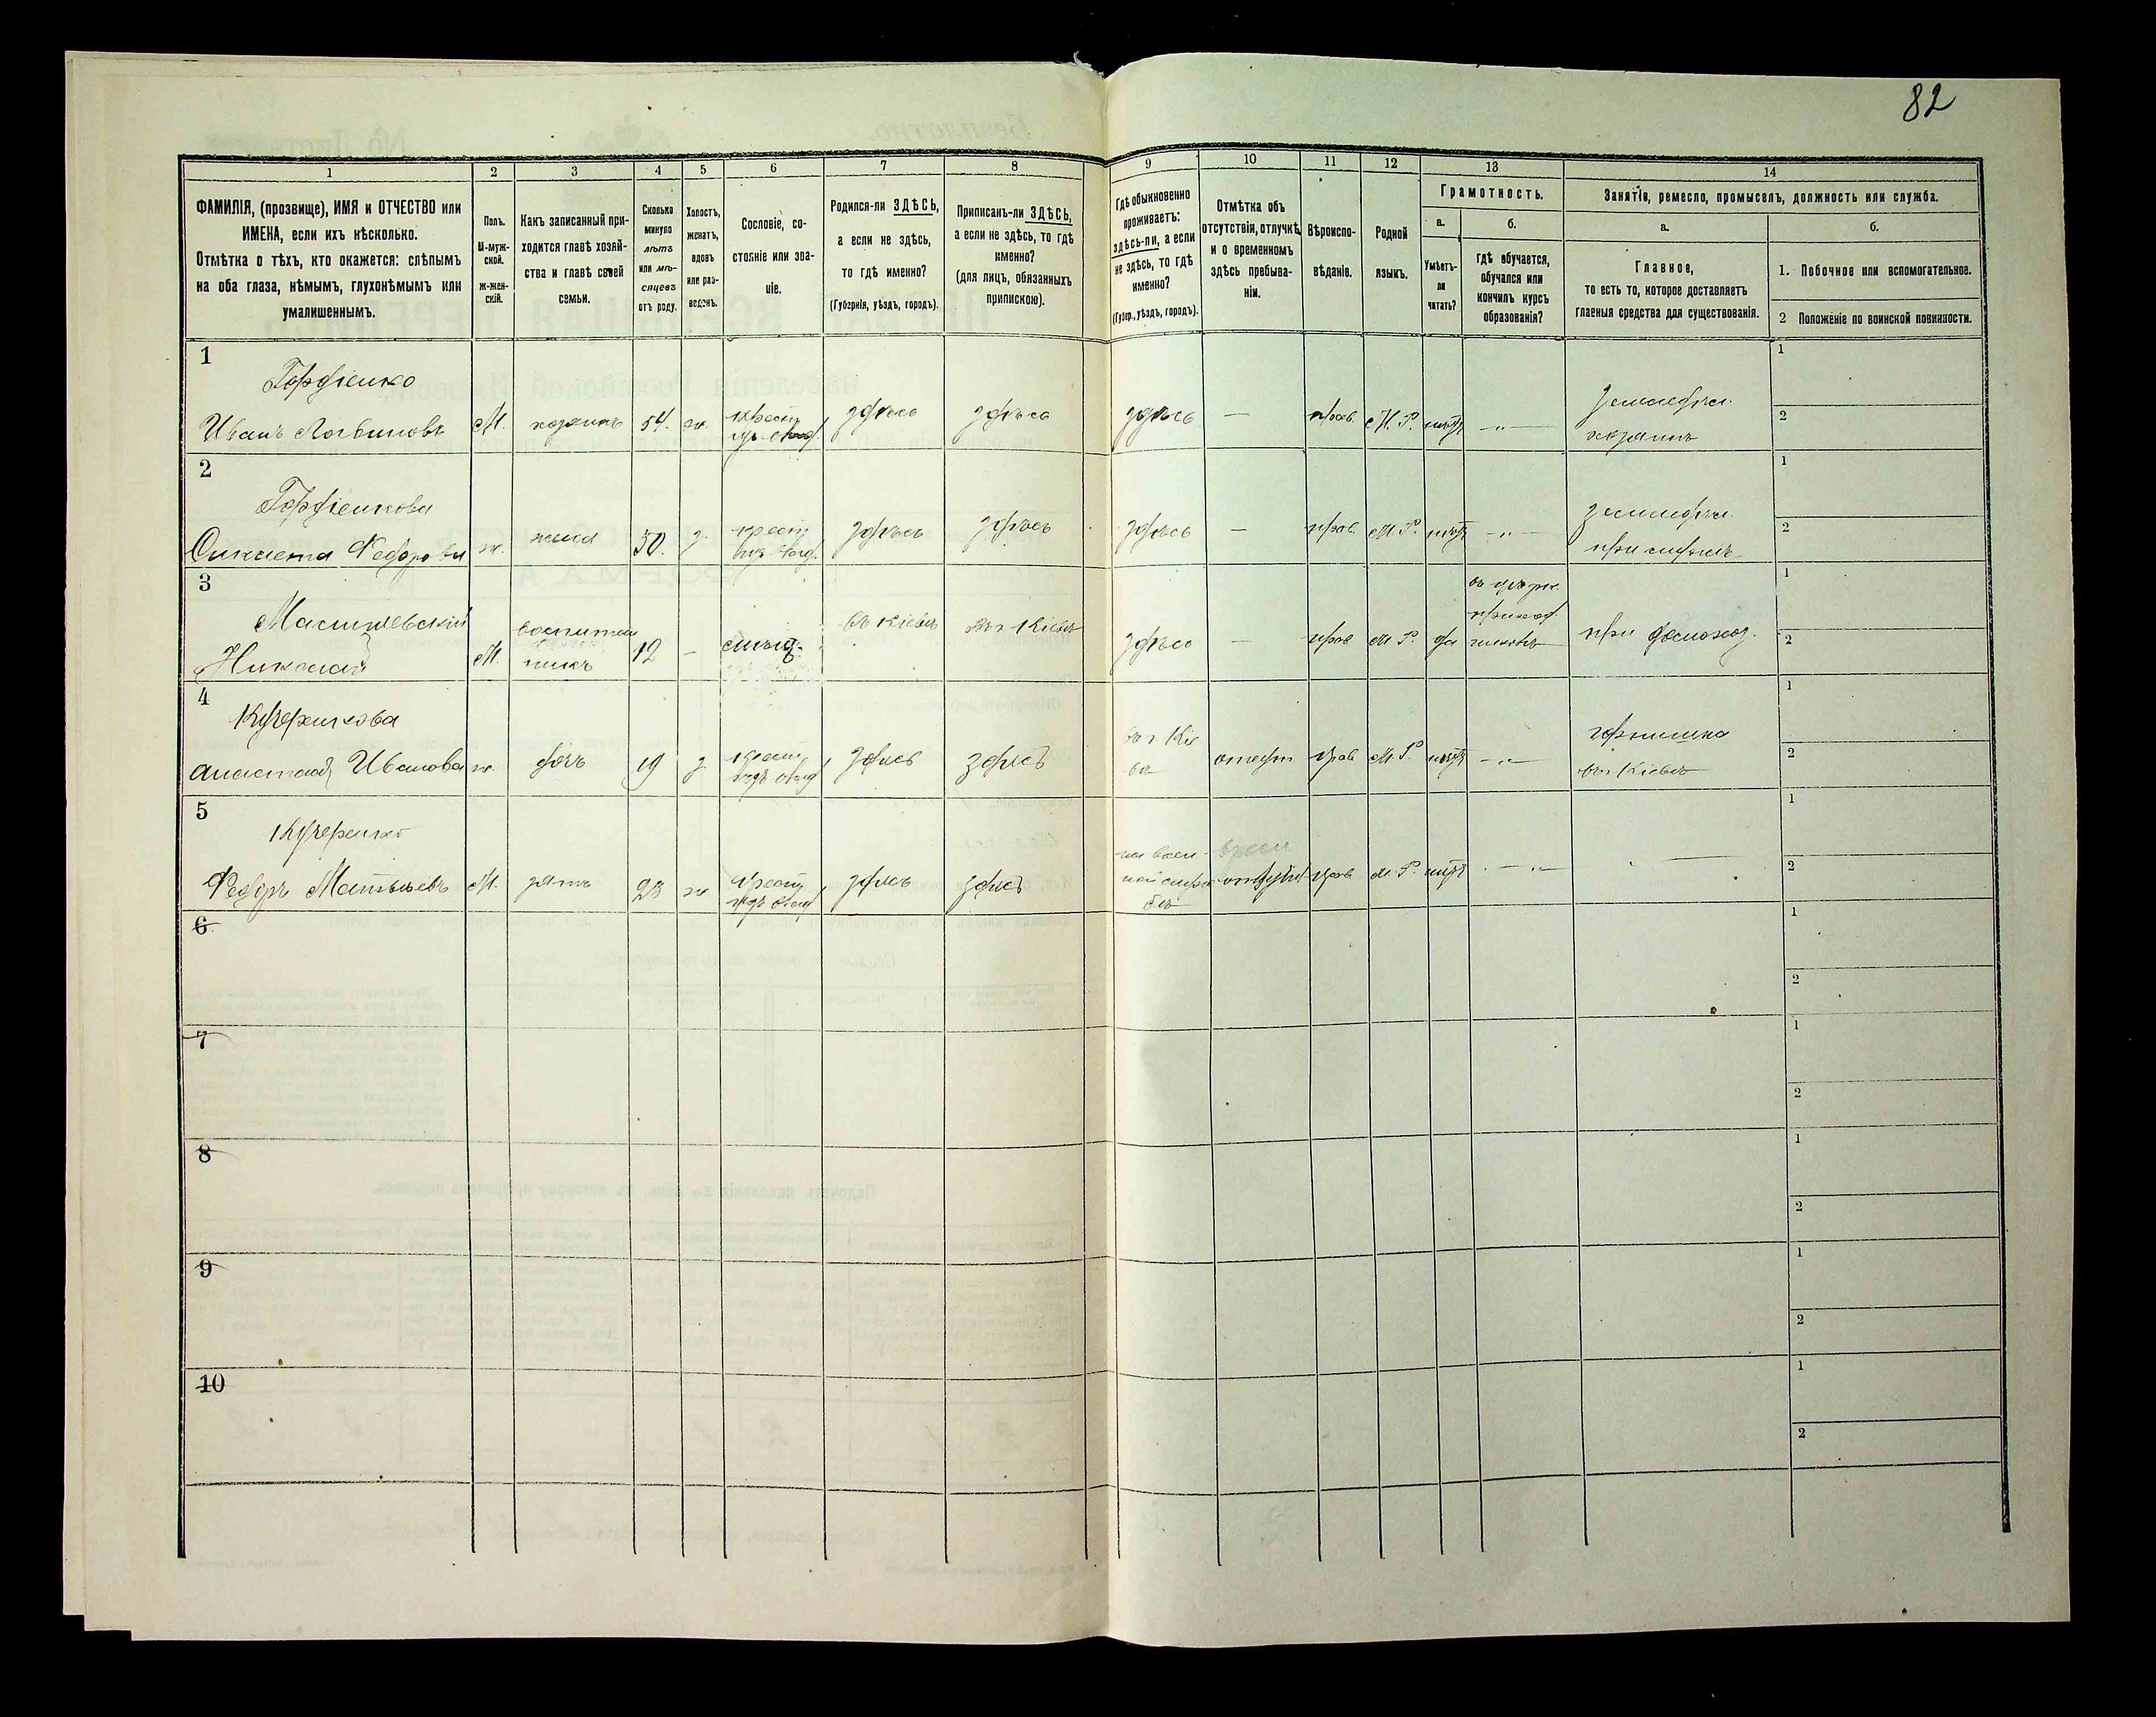 82
1
2
3
4
5
6
7
8
9
10
11
12
13
14
ФАМИЛІЯ, (прозвище), ИМЯ и ОТЧЕСТВО или
ИМЕНА, если ихъ нѣсколько.
Отмѣтка о тѣхъ, кто окажется: слѣпымъ
на оба глаза, нѣмымъ, глухонѣмымъ или
умалишеннымъ.
Полъ.
М-муж-
ской.
Ж-жен-
скій.
Какъ записанный при-
ходится главѣ хозяй-
ства и главѣ своей
семьи.
Сколько
минуло
лѣтъ
или мѣ-
сяцевъ
отъ роду.
Холостъ,
женатъ,
вдовъ
или раз-
веденъ.
Сословіе, со-
стояніе или зва-
ніе.
Родился-ли ЗДѢСЬ,
а если не здѣсь,
то гдѣ именно?
(Губернія, уѣздъ, городъ).
Приписанъ-ли ЗДѢСЬ,
а если не здѣсь, то гдѣ
именно?
(для лицъ, обязанныхъ
припискою).
Гдѣ обыкновенно
проживаетъ:
здѣсь-ли, а если
не здѣсь, то гдѣ
именно?
(Губер., уѣздъ, городъ).
Отмѣтка объ
отсутствіи, отлучкѣ
и о временномъ
здѣсь пребыва-
ніи.
Вѣроиспо-
вѣданіе.
Родной
языкъ.
Грамотность.
а.
Умѣетъ-
ли
читать?
б.
гдѣ обучается,
обучался или
кончилъ курсъ
образованія?
Занятіе, ремесло, промыселъ, должность или служба.
а.
Главное,
то есть то, которое доставляетъ
главныя средства для существованія.
б.
1. Побочное или вспомогательное.
2 Положеніе по воинской повинности.
1
Гордіенко
Иванъ Логвиновъ
М.
хозяинъ
54.
ж.
крест
здѣсь
здѣсь
здѣсь
—
прав.
М. Р.
нѣтъ
— „ —
Земледѣл.
хозяинъ
1
2
2
Гордіенкова
Ѳедорова
ж.
жена
50.
з.
крест
здѣсь
здѣсь
здѣсь
—
прав.
М Р.
нѣтъ
— „ —
земледѣл.
при мужѣ
1
2
3
Николай
М.
воспитан
никъ
12
—
мѣщ.
въ Кіевѣ
въ г Кіевѣ
здѣсь
—
прав
М Р.
да
при домохоз.
1
2
4
Кучеренкова
Анастасія Иванова
ж.
дочь
19
з.
крест
здѣсь
здѣсь
въ г. Кіе
вѣ
отсут
прав
М. Р
нѣтъ
— „ —
горнишна
въ г Кіевѣ
1
2
5
Кучеренко
Ѳедоръ Матвѣевъ
М.
зять
23
ж
крест
здѣсь
здѣсь
на воен-
ной служ
бѣ
прав
М. Р.
нѣтъ
— „
—
1
2
6
1
2
7
1
2
8
1
2
9
1
2
10
1
2